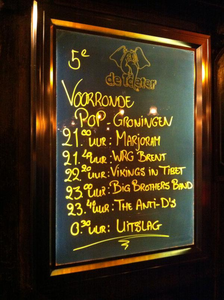 5e
de Tapter
VOORRONDE
POP: GRONINGEN
21.00 UUR: MARJORAM
21.40 UUR: WRG BRENT
22.20 UUR: VIKINGS IN TIBET
23.00 UUR: BIG BROTHERS BAND
23.40 UUR: THE ANTI-D'S
0.30 UUR: UITSLAG